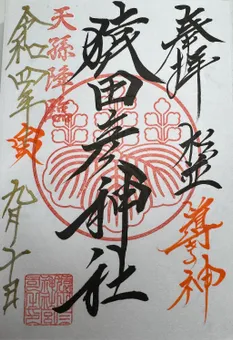 奉拝
杉並
導き神
猿田彦神社
天孫降臨
令和四年
寅
九月十日